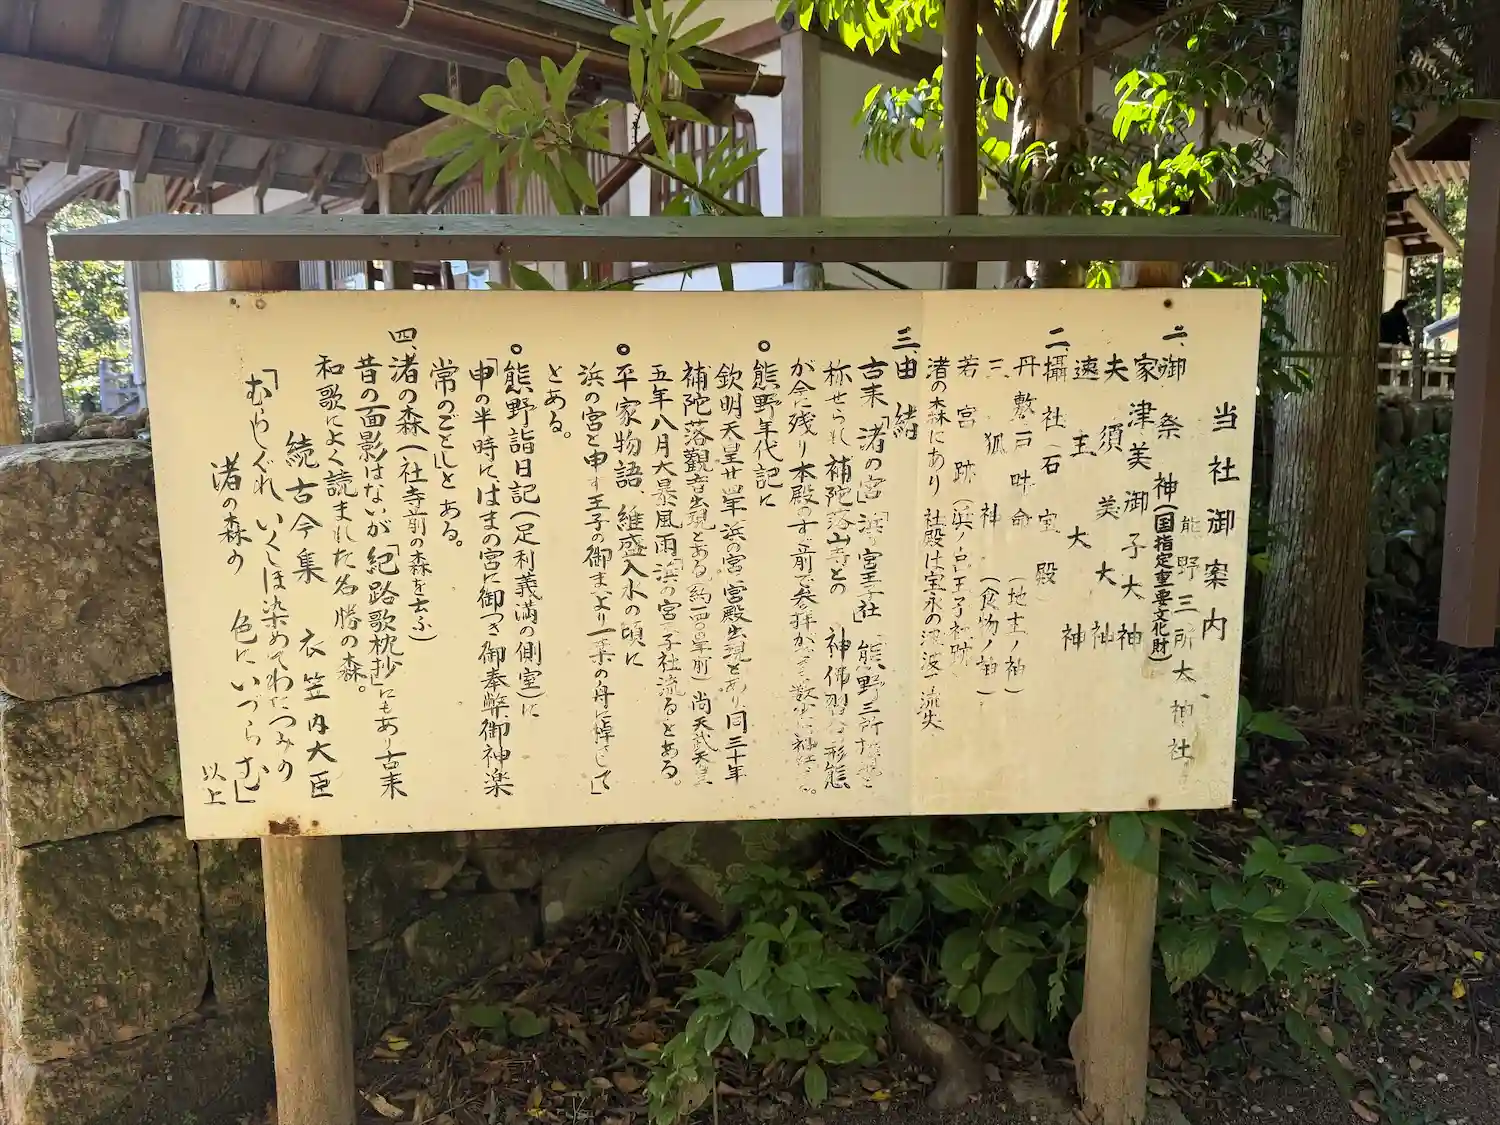 当社御案内
熊野三所大神社
一、御祭神(国指定重要文化財)
家津美御子大神
夫須美大神
速玉大神
二、攝社(石宝殿)
丹敷戸畔命(地主ノ神)
三狐神(食物ノ神)
若宮跡(浜ノ宮王子社跡)
渚の森にあり 社殿は宝永の津波で流失
三、由緒
古来「渚の宮」「浜の宮王子社」熊野三所権現と
称せられ補陀落山寺との 神佛習合の形態
が今に残り本殿のすぐ前で参拝
熊野年代記に
欽明天皇廿四年浜の宮宮殿出現とあり同三十年
補陀落観音出現とある(約一四〇〇年前)尚天武天皇
五年八月大暴風雨「浜の宮王子社流る」とある。
平家物語、維盛入水の頃に
浜の宮と申す王子の御まへより一葉の舟に棹さして」
とある。
熊野詣日記(足利義満の側室)に
「申の半時にはまの宮に御つき御奉弊御神楽
常のごとしとある。
四、渚の森(社寺前の森を云ふ)
昔の面影はないが「紀路歌枕抄」にもあり古来
和歌によく読まれた名勝の森。
続古今集 衣笠内大臣
「むらしぐれいくしほ染めてわたつみの
渚の森の 色にいづらむ」
以上